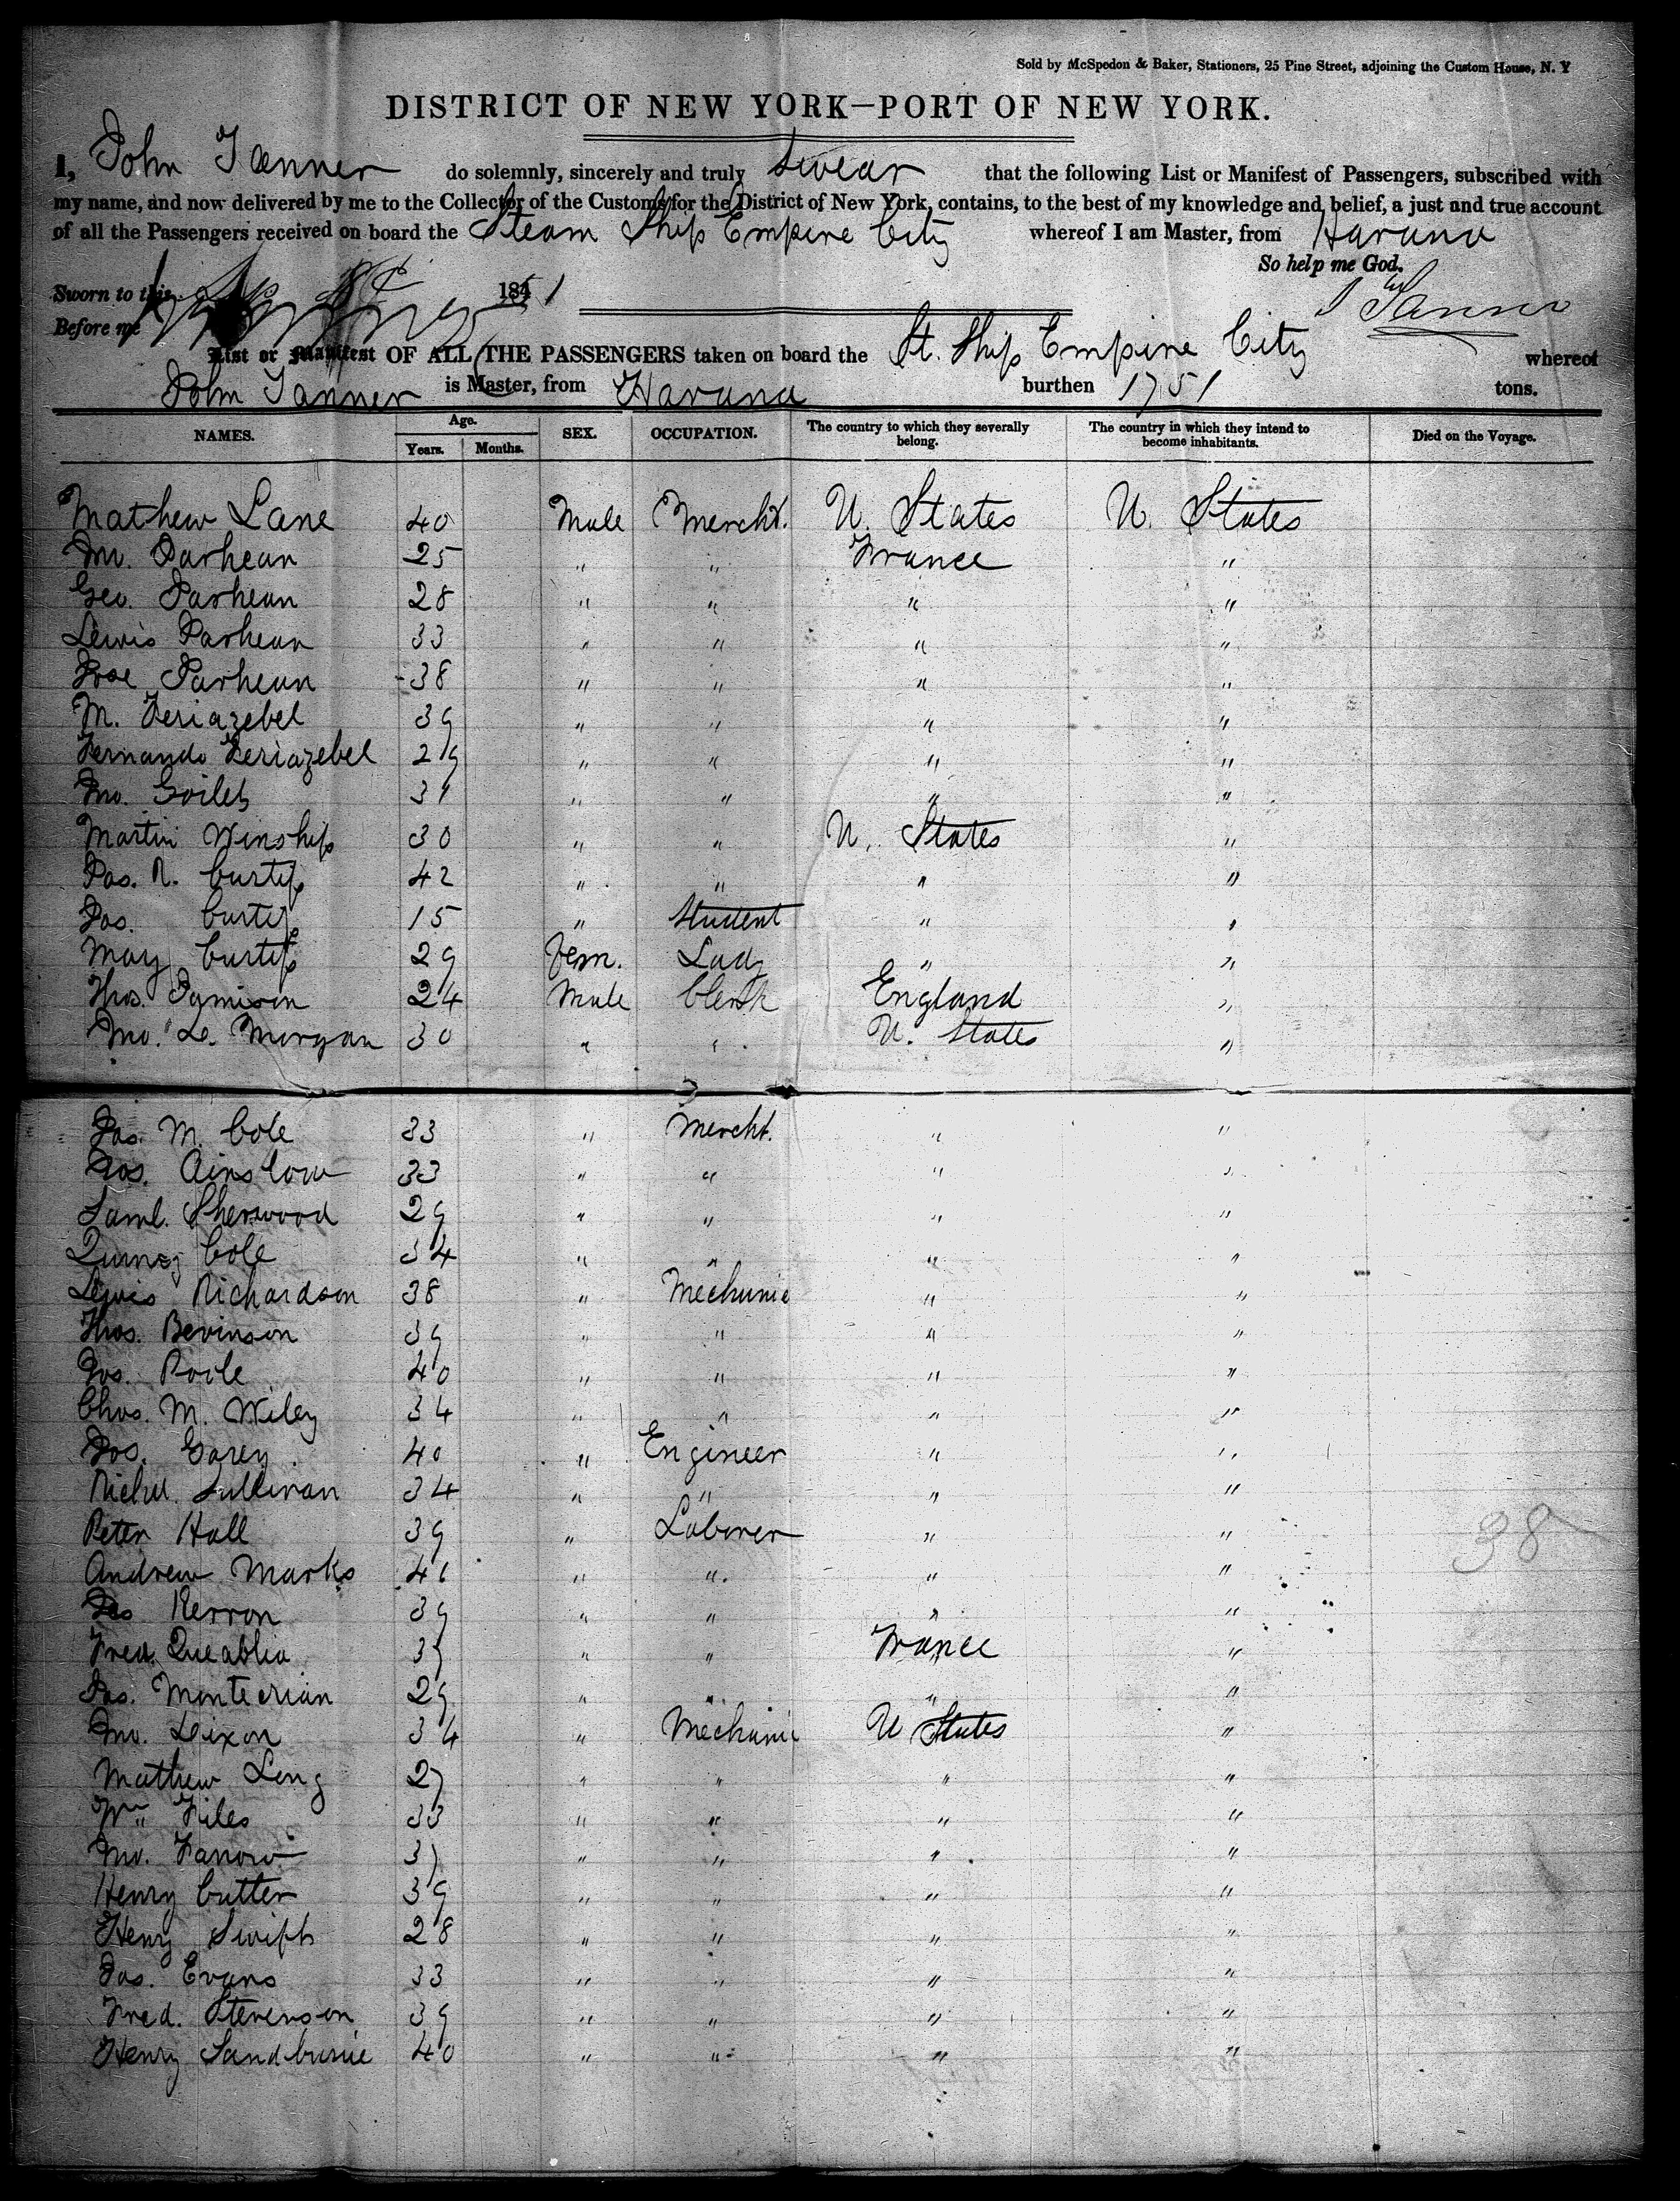 Sold by McSpedon & Baker, Stationers, 25 Pine Street, adjoining the Custom House, N. Y
DISTRICT OF NEW YORK—PORT OF NEW YORK.
I, John Tanner do solemnly, sincerely and truly swear that the following List or Manifest of Passengers, subscribed with
my name, and now delivered by me to the Collector of the Customs for the District of New York, contains, to the best of my knowledge and belief, a just and true account
of all the Passengers received on board the Steam Ship Empire City whereof I am Master, from Havana
So help me God.
Sworn to this 1851
J Tanner
Before me
List or Manifest OF ALL THE PASSENGERS taken on board the St. Ship Empire City whereof
John Tanner is Master, from Havana burthen 1751 tons.
NAMES. Age. Years. Months. SEX. OCCUPATION. The country to which they severally belong. The country in which they intend to become inhabitants. Died on the Voyage.
Mathew Lane 40 Male Mercht. U. States U. States
Jno. Parhean 25 " " France "
Geo. Parhean 28 " " " "
Lewis Parhean 33 " " " "
Jose Parhean 38 " " " "
M. Feriazebel 39 " " " "
Fernando Feriazebel 29 " " " "
Jno. 31 " " " "
Martin Winship 30 " " U. States "
Jas. R. Curtis 42 " " " "
Jas. Curtis 15 " Student " "
May Curtis 29 Fem. Lady " "
Thos. Jamison 24 Male Clerk England "
Jno. L. Morgan 30 " " U. States "
Jas. M. Cole 33 " Mercht. " "
Jos. Ainslow 33 " " " "
Saml. Sherwood 29 " " " "
Quincy Cole 34 " " " "
Lewis Richardson 38 " Mechanic " "
Thos. Bevinson 39 " " " "
Jos. Poole 40 " " " "
Chas. M. Wiley 34 " " " "
Jos. Garey 40 " Engineer " "
Richd. Sullivan 34 " " " "
Peter Hall 39 " Laborer " "
Andrew Marks 41 " " " "
Jas Kerron 39 " " " "
Fred. Queablia 37 " " France "
Jas. Montecrian 29 " " " "
Jno. Dixon 34 " Mechanic U States "
Mathew Long 27 " " " "
Wm Files 33 " " " "
Jno. Fanow 37 " " " "
Henry Cutter 39 " " " "
Henry Swift 28 " " " "
Jas. Evans 33 " " " "
Fred. Stevenson 39 " " " "
Henry Sandburie 40 " " " "
38